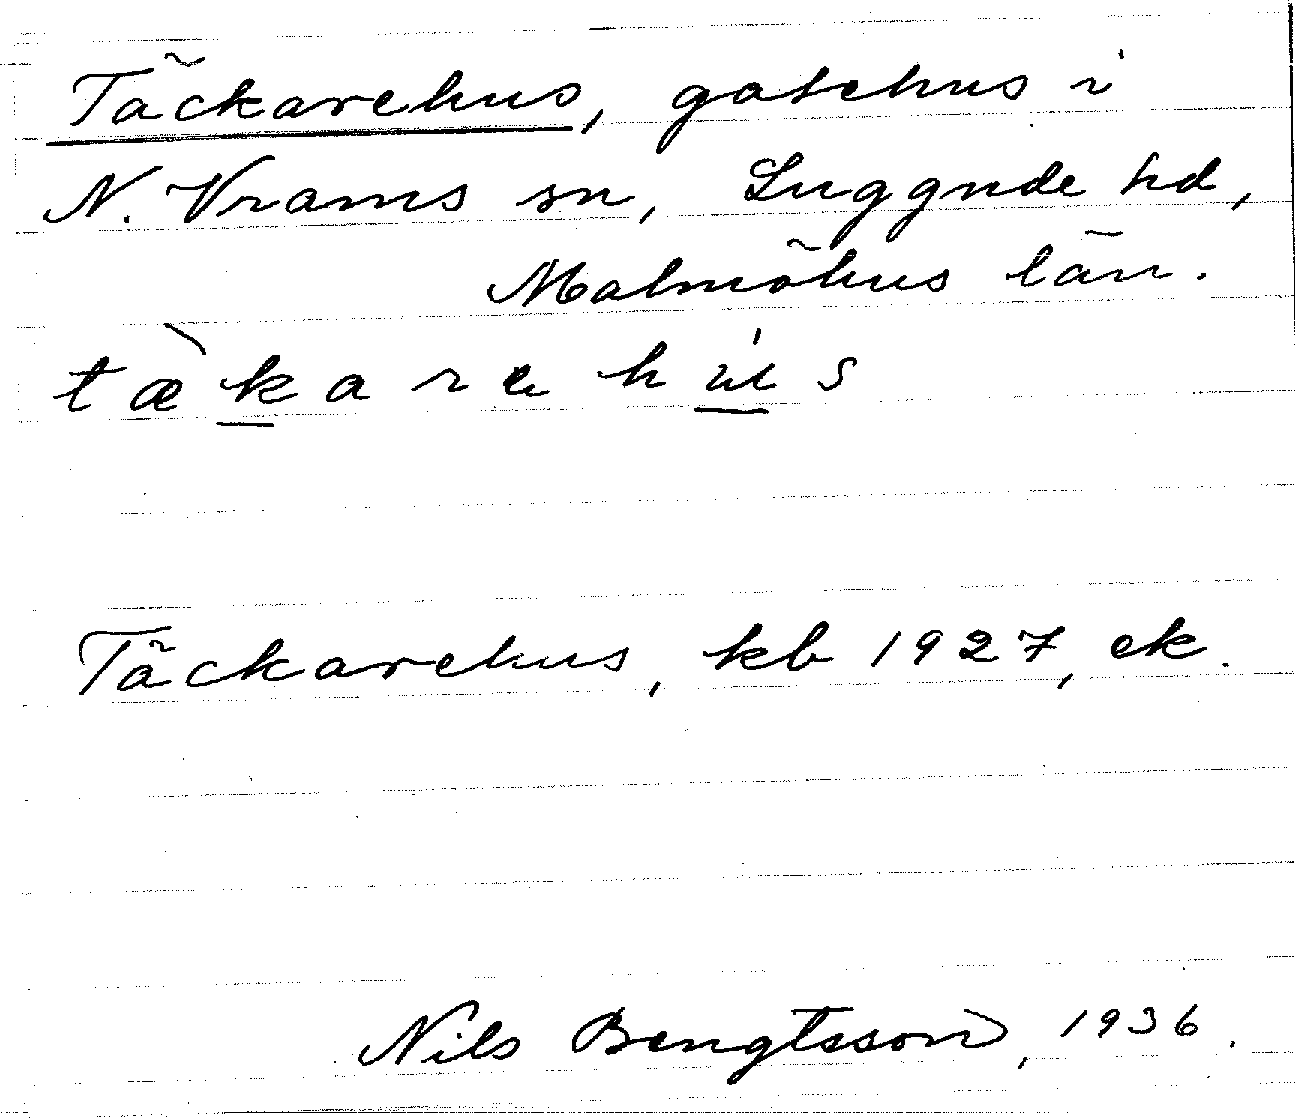 Täckarehus, gatehus i
N. Vrams sn, Luggude hd,
Malmöhus län.
tæ̀karehús
Täckarehus, kb 1927, ek.
Nils Bengtsson, 1936.